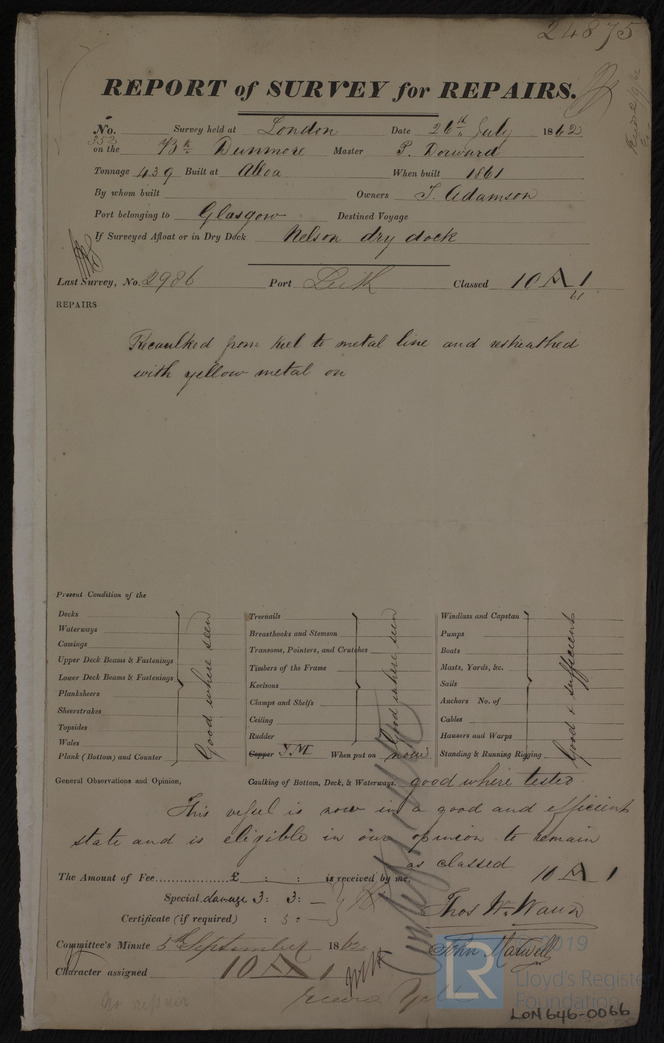 24875
REPORT of SURVEY for REPAIRS.
No. 353 Survey held at London Date 26th July 1862
on the Bk Dunmore Master P. Dorward
Tonnage 439 Built at Alloa When built 1861
By whom built Owners T. Adamson
Port belonging to Glasgow Destined Voyage
If Surveyed Afloat or in Dry Dock Nelson dry dock
Last Survey, No. 2986 Port Leith Classed 10 A 1
61
REPAIRS
Recaulked from keel to metal line and resheathed
with yellow metal on
Present Condition of the
Decks
Waterways
Comings
Upper Deck Beams & Fastenings
Lower Deck Beams & Fastenings
Planksheers
Sheerstrakes
Topsides
Wales
Plank (Bottom) and Counter
Good where seen
Treenails
Breasthooks and Stemson
Transoms, Pointers, and Crutches
Timbers of the Frame
Keelsons
Clamps and Shelfs
Ceiling
Rudder
Copper Y.M. When put on now
Good where seen
Windlass and Capstan
Pumps
Boats
Masts, Yards, &c.
Sails
Anchors No. of
Cables
Hausers and Warps
Standing & Running Rigging
Good & sufficient
General Observations and Opinion, Caulking of Bottom, Deck, & Waterways good where tested
This vessel is now in a good and efficient
state and is eligible in our opinion to remain
as classed 10 A 1
The Amount of Fee £ : : is received by me,
Special damage 3 : 3 : —
Certificate (if required) : 5 : —
Thos W. Wawn
Committee's Minute 5th September 1862
John Maxwell
Character assigned 10 A 1
No repair
2019
LR
Lloyd's Register
Foundation
LON646-0066